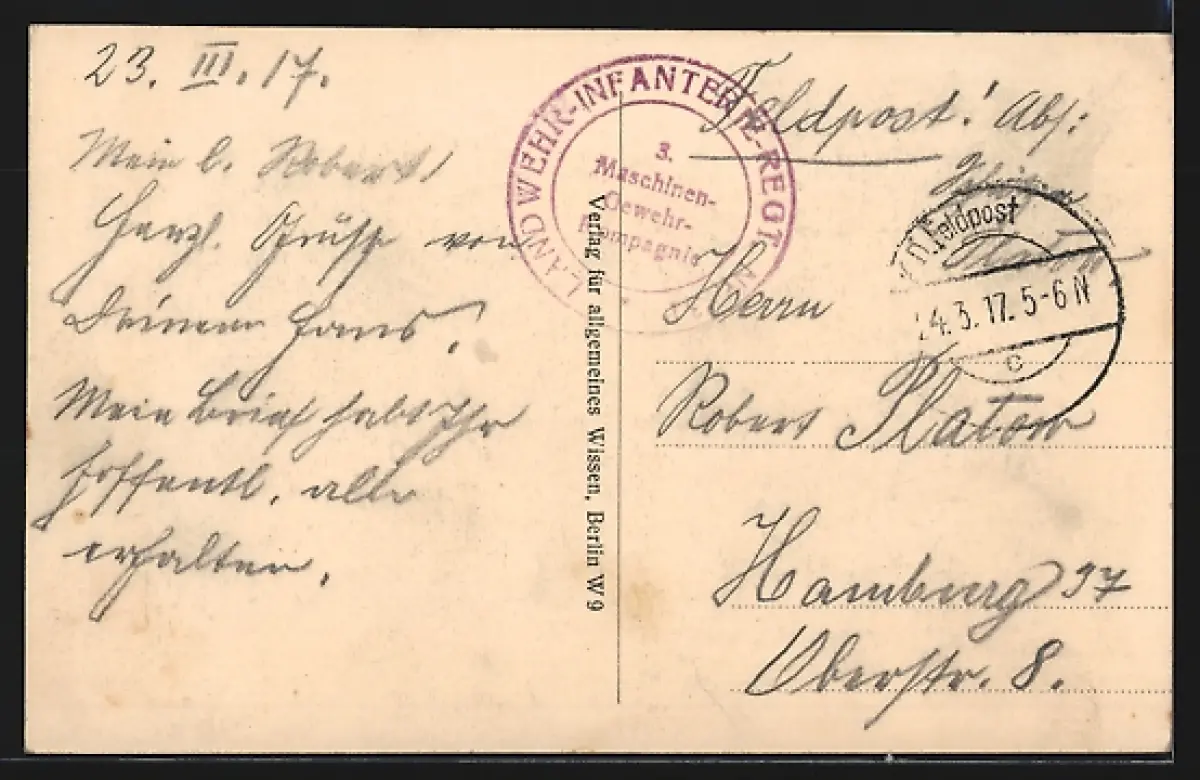 23. III. 17.
Mein l. Robert!
Herzl. Grüße von
Deinem Hans.
Mein Brief habt Ihr
hoffentl. alle
erhalten.
LANDWEHR-INFANTERIE-REGT
3.
Maschinen-
Gewehr-
Kompagnie
Verlag für allgemeines Wissen, Berlin W 9
Feldpost! Abs:
Feldpost
24.3.17. 5-6 N
c
Herrn
Robert Platow
Hamburg 37
Oberstr. 8.